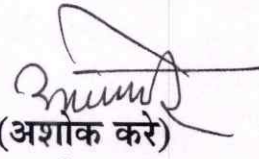 (अशोक करे)